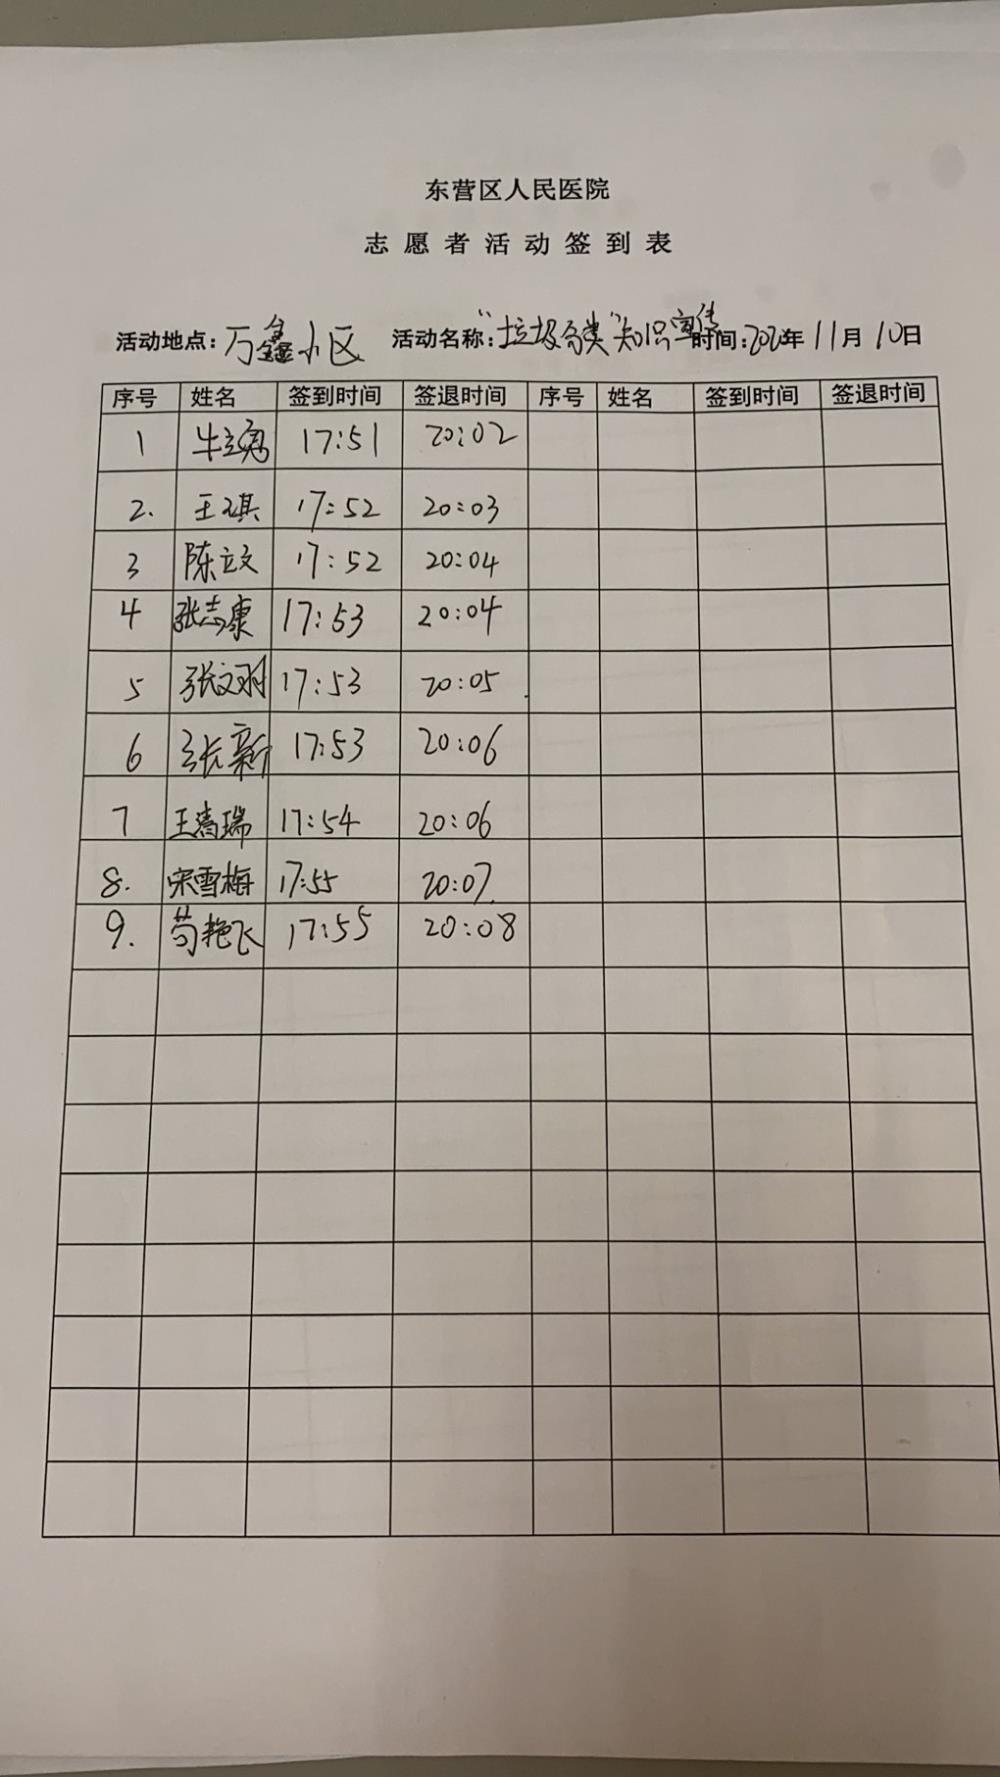 东营区人民医院
志愿者活动签到表
活动地点：万鑫小区 活动名称："垃圾分类"知识宣传 时间：2020年11月10日
序号 姓名 签到时间 签退时间 序号 姓名 签到时间 签退时间
1 牛立勇 17:51 20:02
2. 王琪 17:52 20:03
3 陈立文 17:52 20:04
4 张志康 17:53 20:04
5 张文 17:53 20:05
6 张新 17:53 20:06
7 王瑞 17:54 20:06
8. 宋雪梅 17:55 20:07
9. 苟艳飞 17:55 20:08